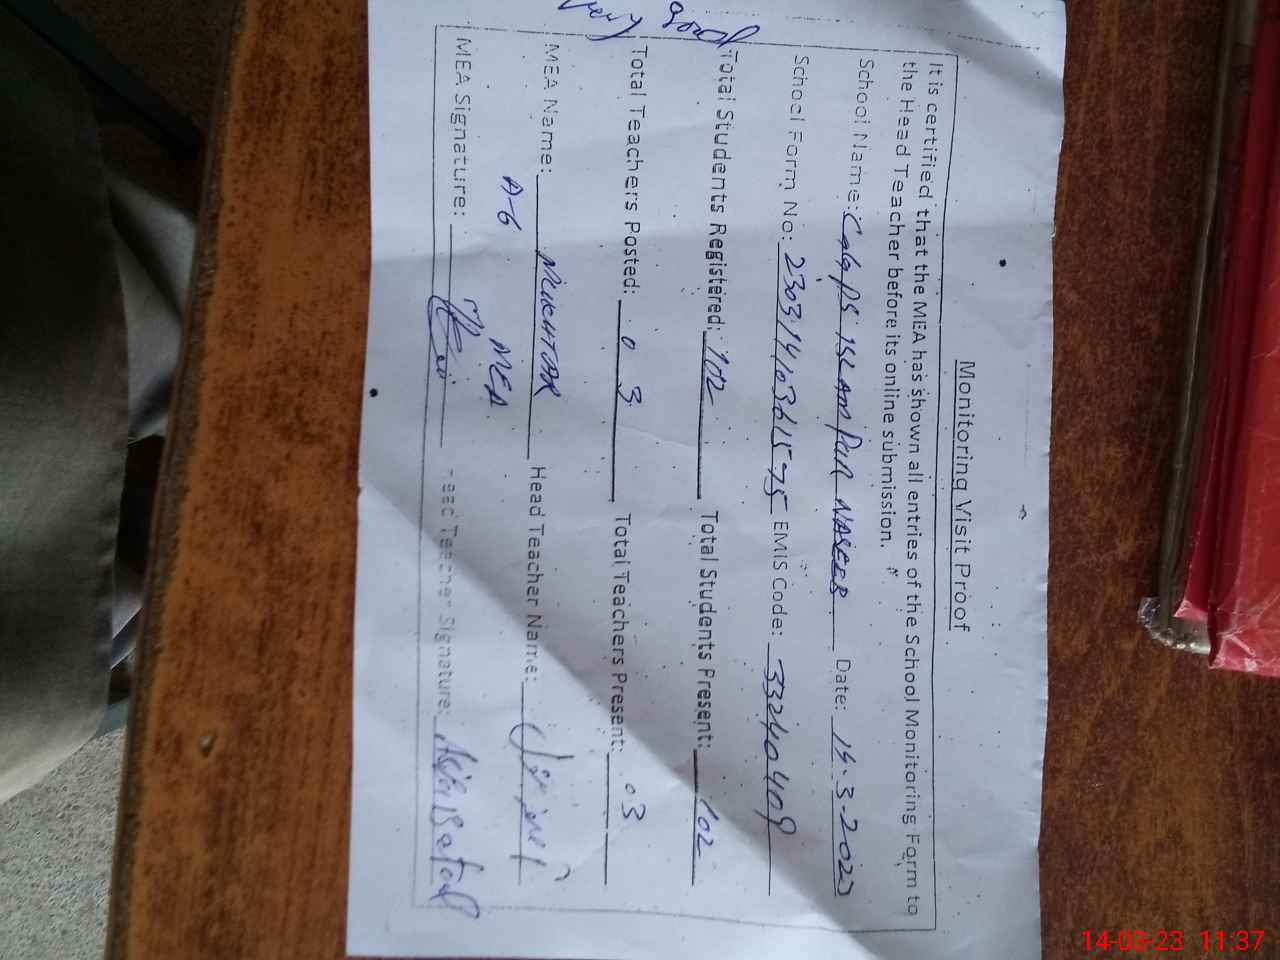 Monitoring Visit Proof
It is certified that the MEA has shown all entries of the School Monitoring Form to
the Head Teacher before its online submission.
School Name: GGPS ISLAM PUR NASEER Date: 14-3-2023
School Form No: 2303141403611575 EMIS Code: 33240409
Total Students Registered: 102 Total Students Present: 102
Total Teachers Posted: 03 Total Teachers Present: 03
MEA Name: MUKHTAR Head Teacher Name:
A-6 MEA
MEA Signature: Head Teacher Signature:
good
14-03-23 11:37